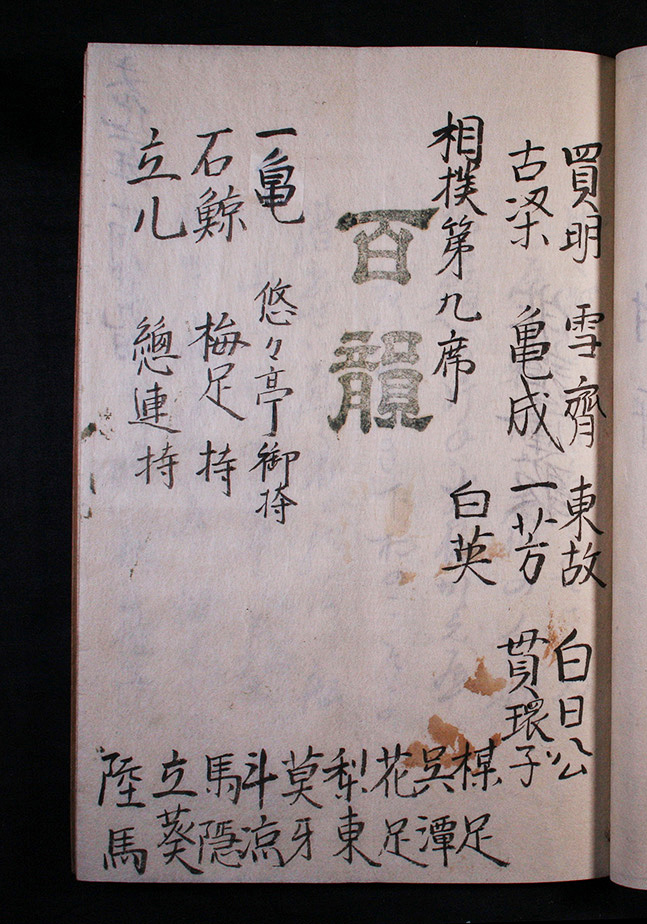 買明 雪齋 東故 白日公
古梁 亀成 一芳 貫環子
相撲第九席 白英
百韻
一亀 悠々亭御持
石鯨 梅足持
立儿 總連持
楳足
呉潭
花足
梨東
莫牙
斗凉
馬隠
立葵
陸馬